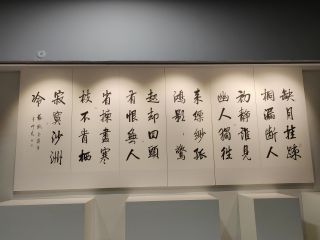 缺月挂疎
桐漏断人
初静誰見
幽人獨往
来縹緲孤
鴻影驚
起却回頭
有恨無人
省揀盡寒
枝不肯栖
寂寞沙洲
冷